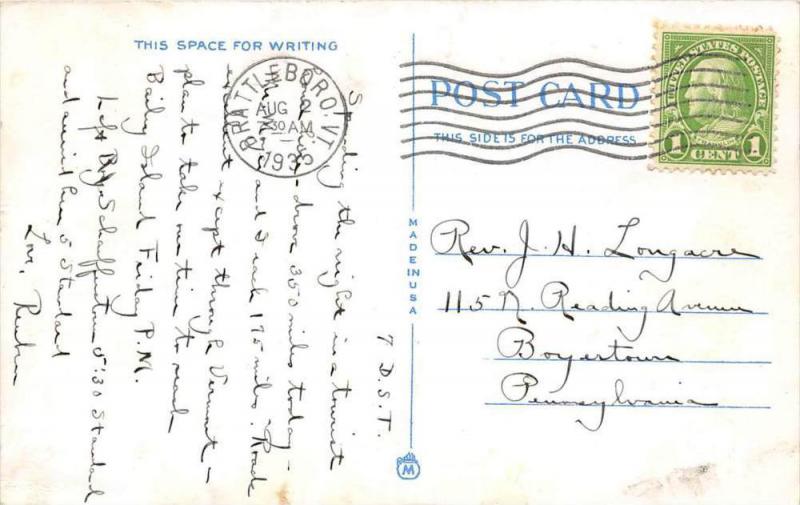 THIS SPACE FOR WRITING
BRATTLEBORO, VT.
AUG
30 AM
193
7 D.S.T.
Spending the night in a tourist
drove 350 miles today -
and I each 175 miles. Road
excellent except through Vermont -
plan to take our time to reach
Baily Island Friday P.M.
Left Schaefferstown 5:30 Standard
and arrived here 5 Standard
Love, Reuben
MADE IN USA
M
POST CARD
THIS SIDE IS FOR THE ADDRESS
UNITED STATES POSTAGE
1 CENT 1
Rev. J. H. Longacre
115 N. Reading Avenue
Boyertown
Pennsylvania